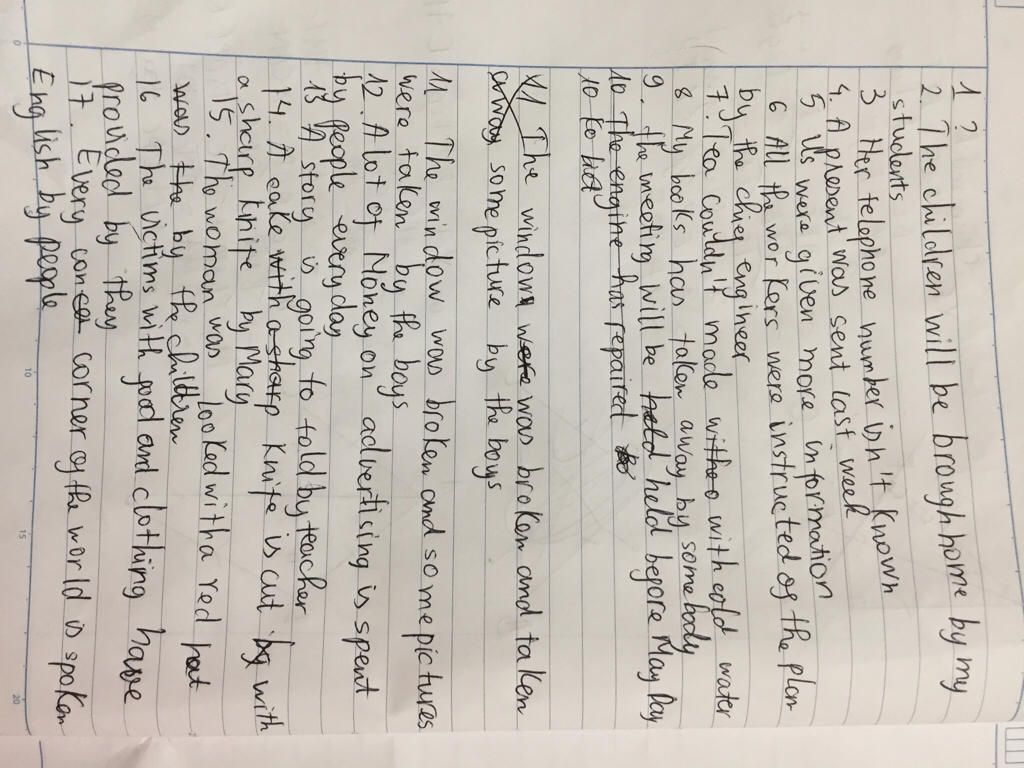 1 ?
2. The children will be brough home by my
students
3 Her telephone number isn't known
4. A present was sent last week
5 Us were given more information
6 All the workers were instructed of the plan
by the chief engineer
7. Tea couldn't made with cold water
8 My books has taken away by somebody
9. The meeting will be held before May Day
10 The engine has repaired
10 Ko bid
11 The window was broken and taken
away some picture by the boys
11 The window was broken and some pictures
were taken by the boys
12. A lot of Money on advertising is spent
by people everyday
13 A story is going to told by teacher
14. A cake with a sharp knife is cut by with
a sharp knife by Mary
15. The woman was looked with a red hat
was the by the children
16 The victims with food and clothing have
provided by they
17. Every corner of the world is spoken
English by people
0
10
15
20